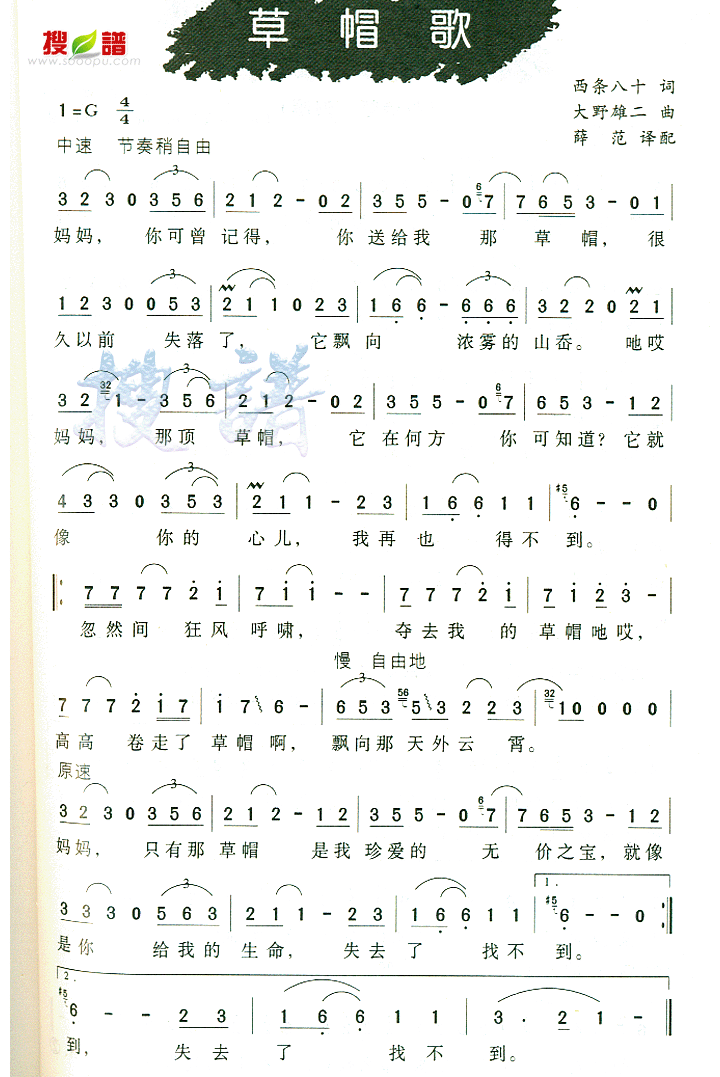 搜谱
www.sooopu.com
草帽歌
西条八十 词
1=G 4/4
大野雄二 曲
薛 范 译配
中速 节奏稍自由
3 2 3 0 3 5 6 | 2 1 2 - 0 2 | 3 5 5 - 0 6 7 | 7 6 5 3 - 0 1 |
妈妈， 你可曾 记得， 你 送给我 那 草 帽， 很
1 2 3 0 0 5 3 | 2 1 1 0 2 3 | 1 6 6 - 6 6 6 | 3 2 2 0 2 1 |
久以前 失落了， 它飘向 浓雾的山岙。 吔哎
3 2 32 1 - 3 5 6 | 2 1 2 - 0 2 | 3 5 5 - 0 6 7 | 6 5 3 - 1 2 |
妈妈， 那顶 草帽， 它 在何方 你 可知道？它就
4 3 3 0 3 5 3 | 2 1 1 - 2 3 | 1 6 6 1 1 | #5 6 - - 0 |
像 你的 心儿， 我再也 得不 到。
7 7 7 7 2 1 | 7 1 1 - - | 7 7 7 2 1 | 7 1 2 3 - |
忽然间 狂风 呼啸， 夺去我 的 草帽吔哎，
慢 自由地
7 7 7 2 1 7 | 1 7 6 - | 6 5 3 56 5 3 2 2 3 | 32 1 0 0 0 0 |
高高 卷走了 草帽 啊， 飘向那 天外云 霄。
原速
3 2 3 0 3 5 6 | 2 1 2 - 1 2 | 3 5 5 - 0 6 7 | 7 6 5 3 - 1 2 |
妈妈， 只有那 草帽 是我 珍爱的 无 价之宝，就像
1.
3 3 3 0 5 6 3 | 2 1 1 - 2 3 | 1 6 6 1 1 | #5 6 - - 0 :|
是你 给我的 生命， 失去 了 找不 到。
2.
#5 6 - - 2 3 | 1 6 6 1 1 | 3 . 2 1 - |
到， 失去 了 找不 到。